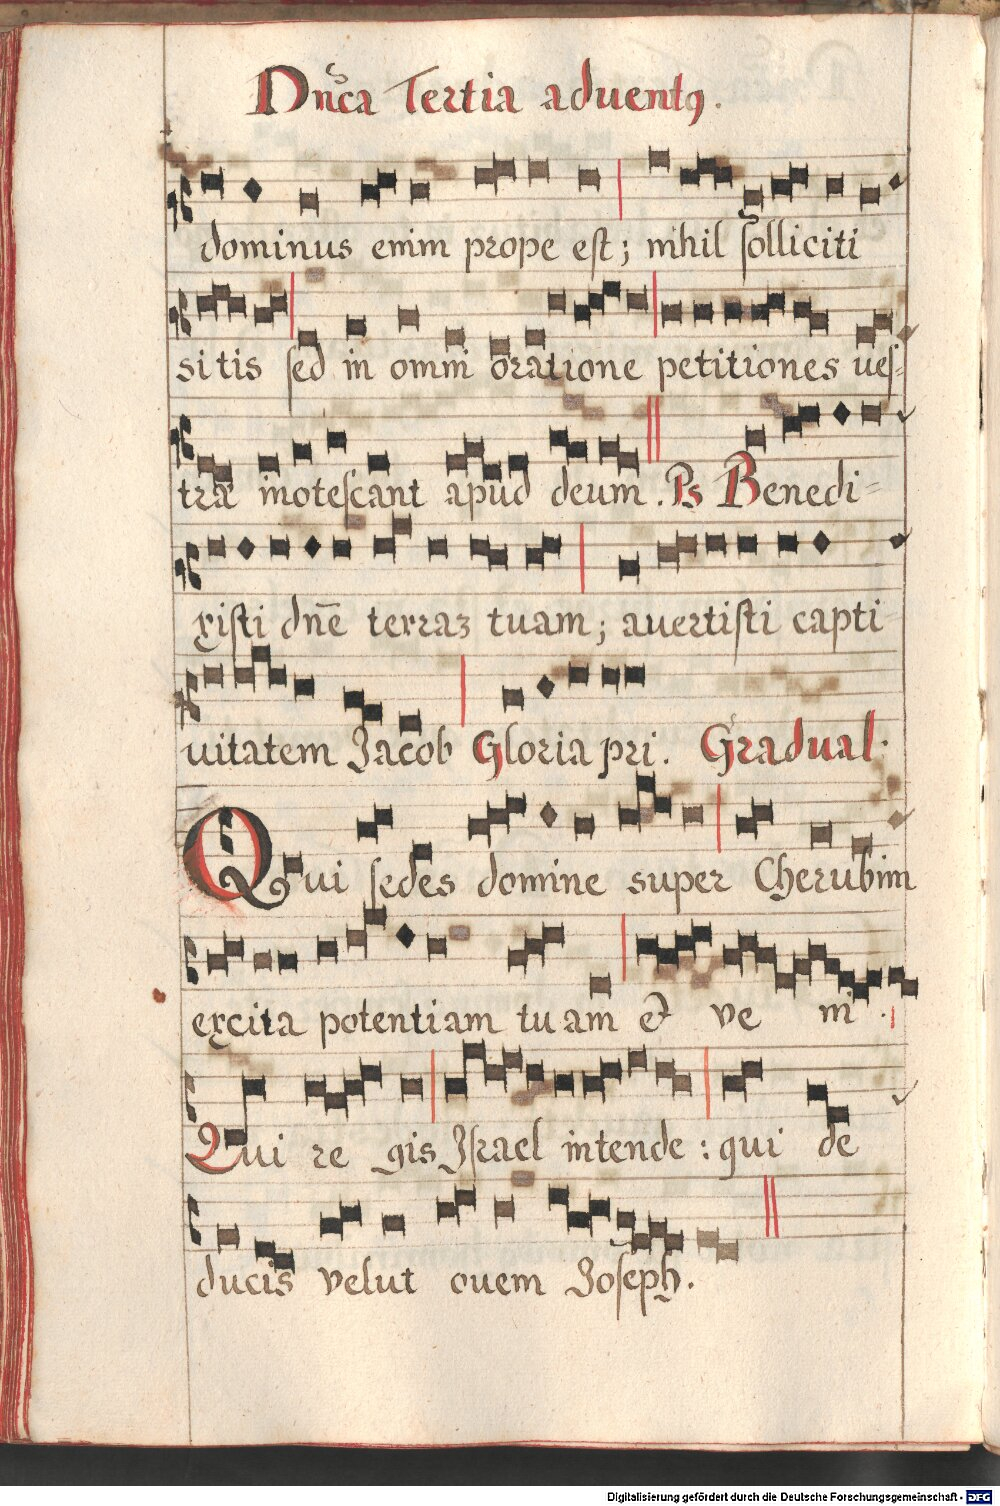 Dñica Tertia aduentꝯ.
dominus enim prope est; nihil solliciti
sitis sed in omni oratione petitiones ues=
tra inotescant apud deum. Ps Benedi=
xisti dñe terraꝫ tuam; auertisti capti
uitatem Jacob Gloria pri. Gradual.
Qui sedes domine super Cherubim
excita potentiam tuam & ve ni.
Qui re gis Israel intende: qui de
ducis velut ouem Joseph.
Digitalisierung gefördert durch die Deutsche Forschungsgemeinschaft - DFG